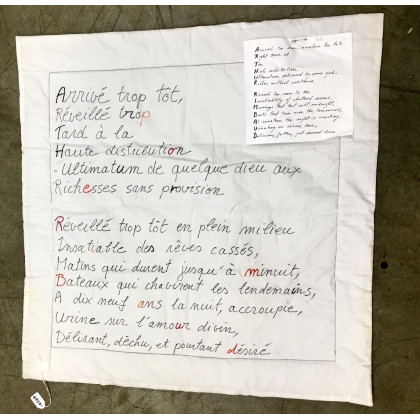 Arrivé trop tôt,
Réveillé trop
Tard à la
Haute distribution
-Ultimatum de quelque dieu aux
Richesses sans provision
Réveillé trop tôt en plein milieu
Insatiable des rêves cassés,
Matins qui durent jusqu'à minuit,
Bateaux qui chavirent les lendemains,
A dix neuf ans la nuit, accroupie,
Urine sur l'amour divin,
Délirant, déchu, et pourtant désiré
Arrived too soon, awaken too late
Right down at
The
High distribution
Ultimatum delivered to some god
Riches without
Roused too soon to the
of shattered dreams,
Mornings that last until midnight,
Boats that turn over the tomorrows,
At nineteen the night is
Urinating on divine love,
fallen, yet desired